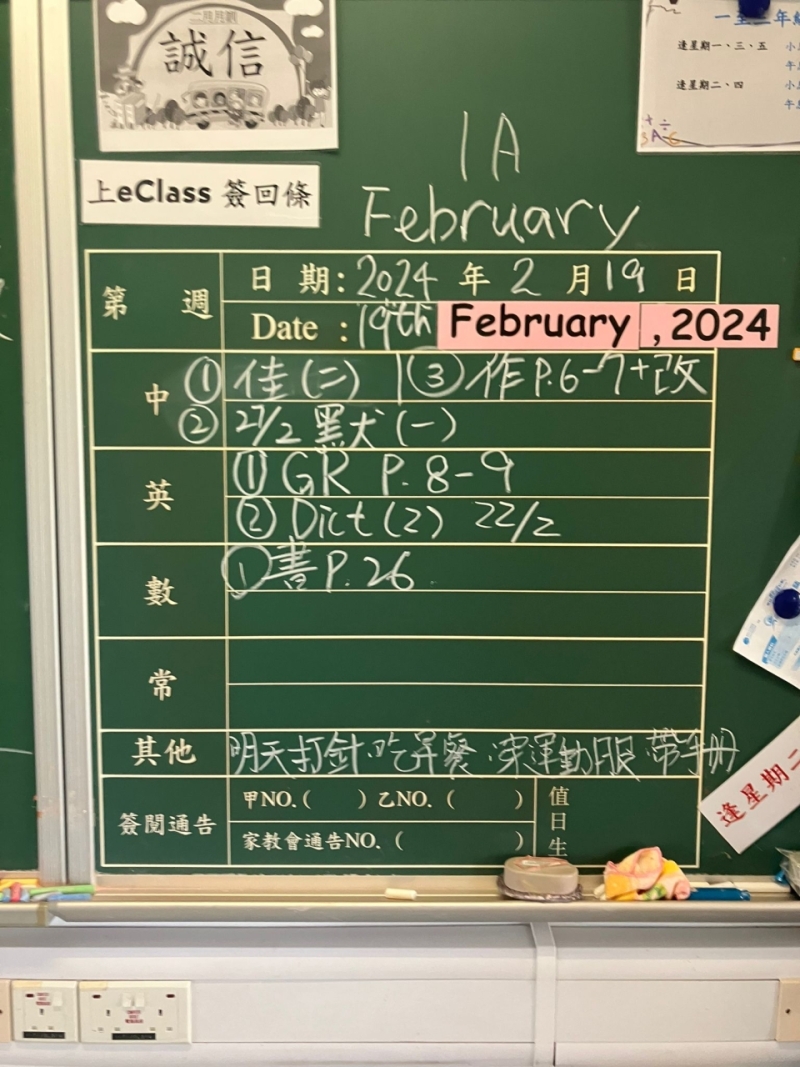 二月月訓
誠信
一至三年級
逢星期一、三、五
逢星期二、四
1A
上eClass 簽回條
February
第 週
日 期：2024 年 2 月 19 日
Date ：19th February , 2024
中
① 佳(二) ③ 作 P.6-7+改
② 27/2 黑犬(一)
英
① GR P. 8-9
② Dict (2) 22/2
數
① 書 P.26
常
其他
明天打針.吃早餐.穿運動服 帶手冊
簽閱通告
甲NO.( ) 乙NO.( )
家教會通告NO.( )
值日生
逢星期二